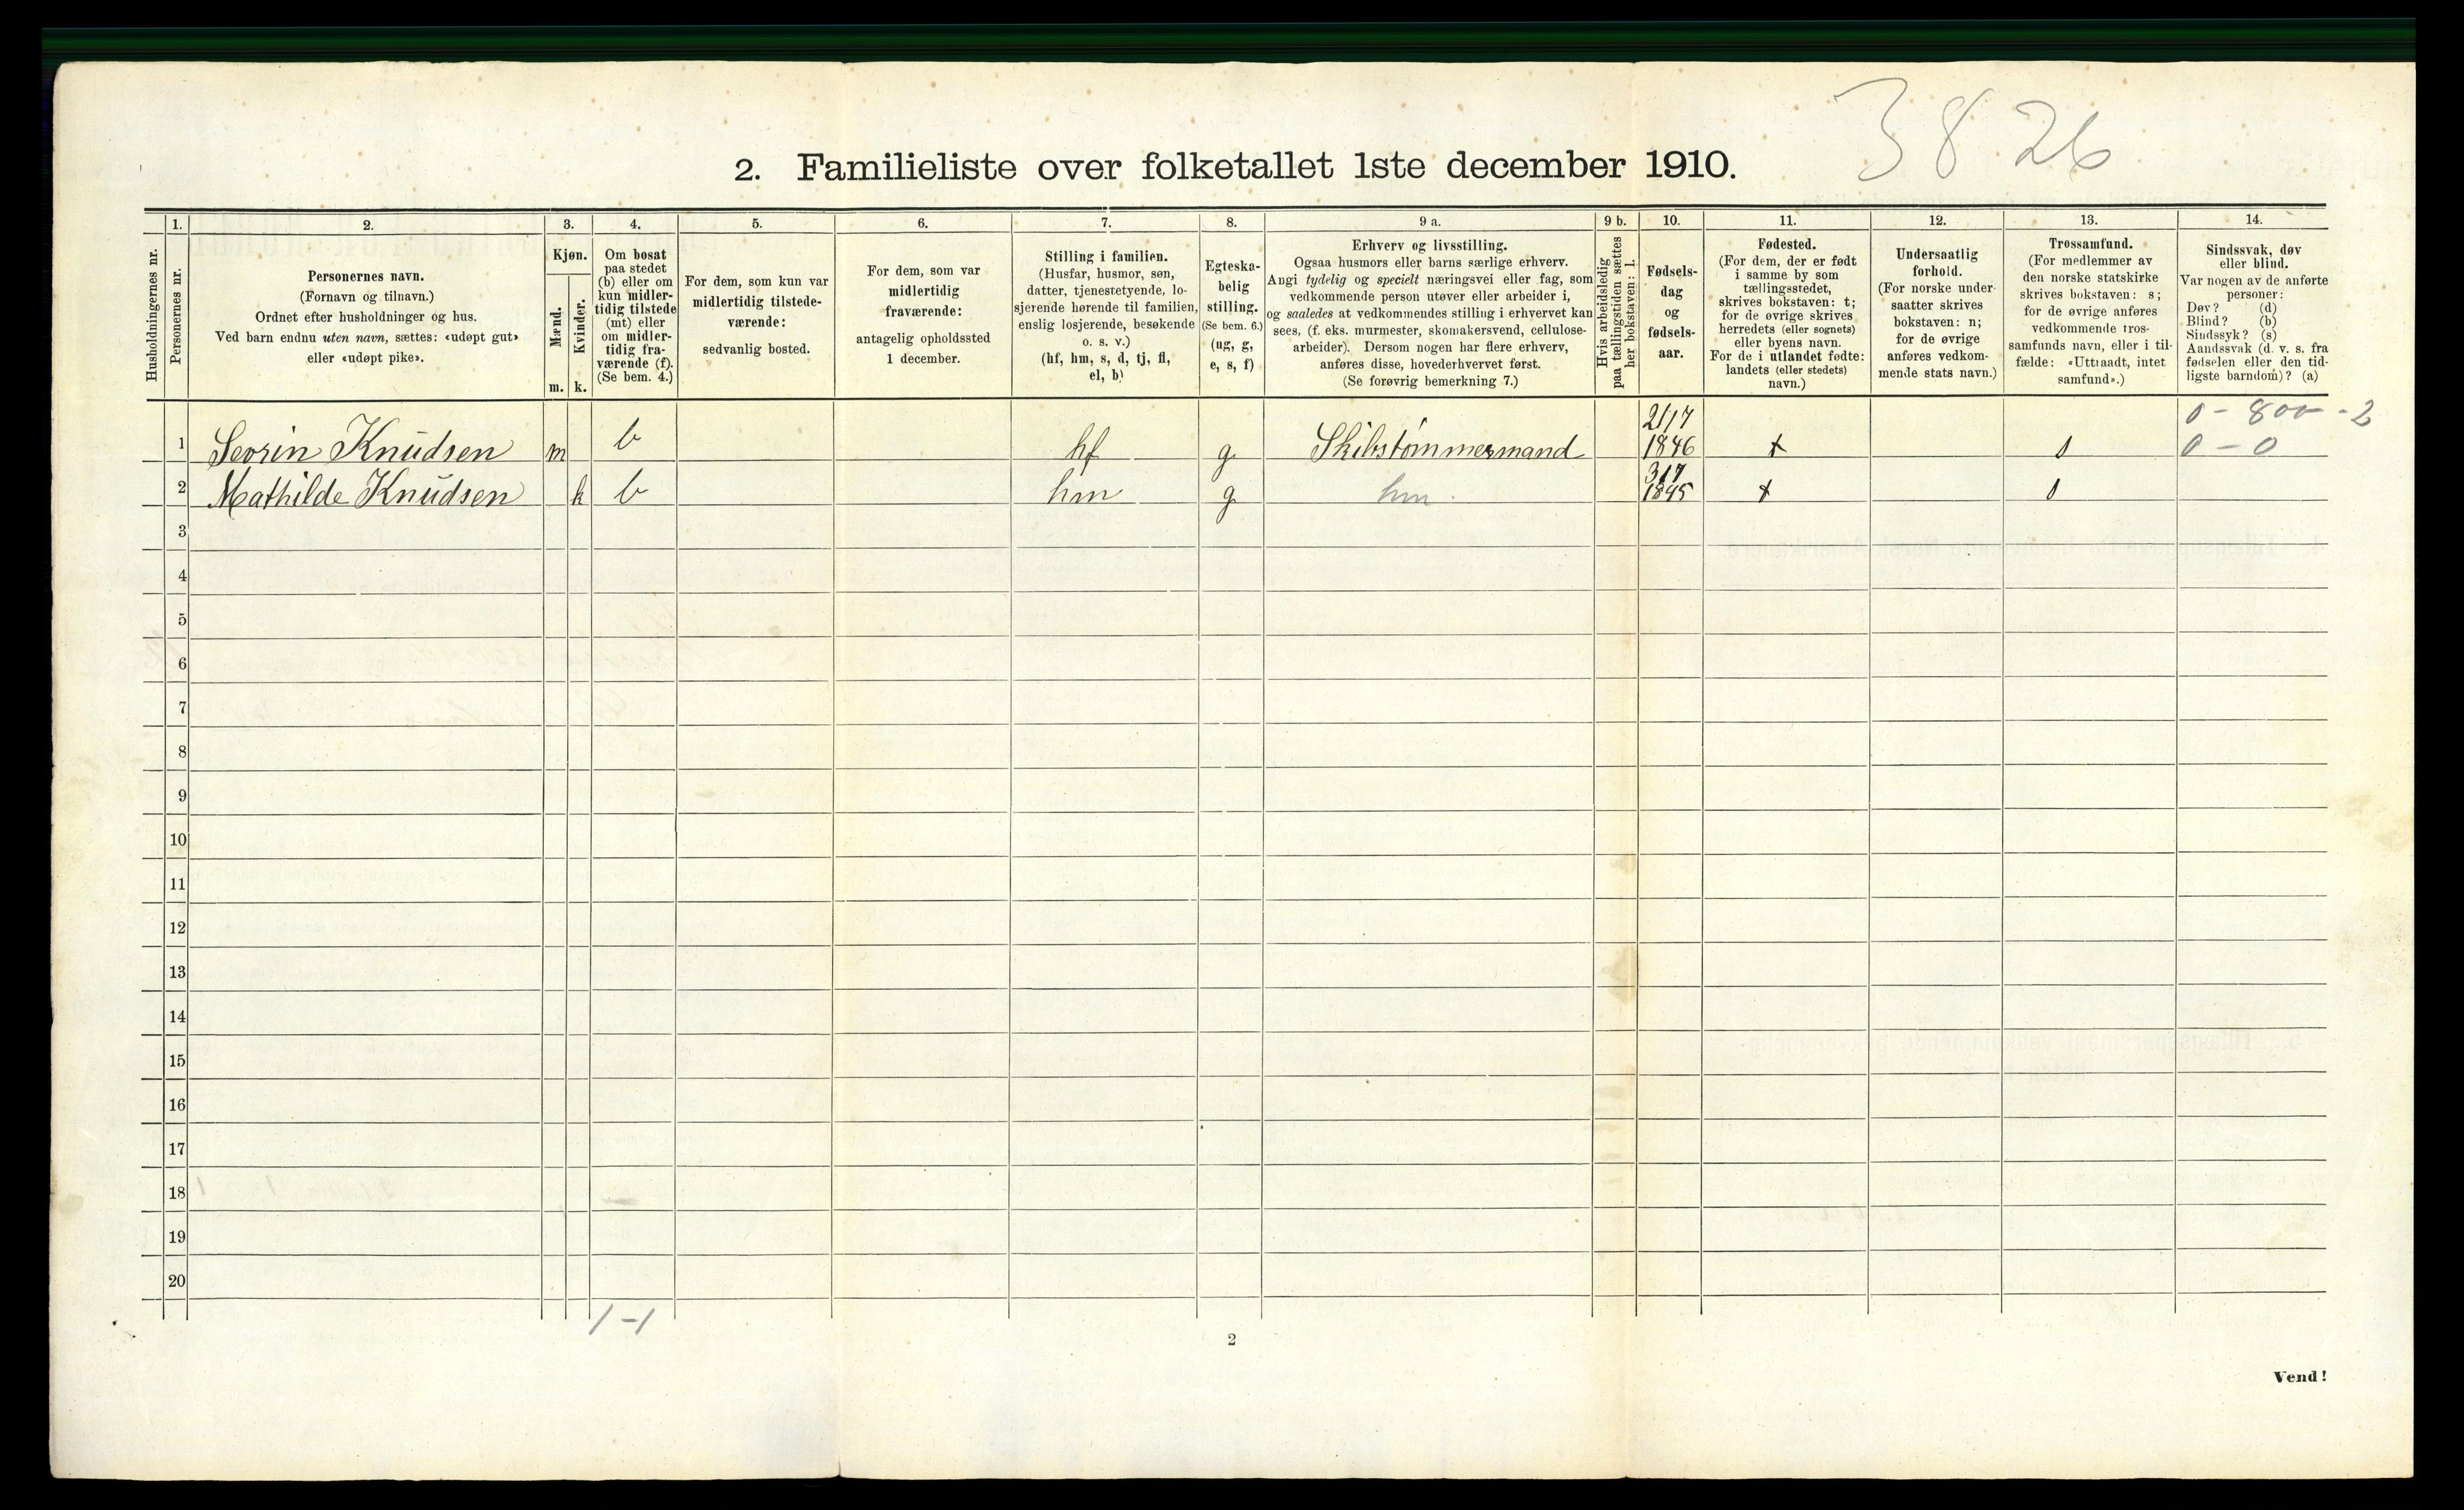 3826
2. Familieliste over folketallet 1ste december 1910.
Husholdningernes nr.
1.
Personernes nr.
2.
Personernes navn.
(Fornavn og tilnavn.)
Ordnet efter husholdninger og hus.
Ved barn endnu uten navn, sættes: «udøpt gut»
eller «udøpt pike».
3.
Kjøn.
Mænd.
Kvinder.
m. k.
4.
Om bosat
paa stedet
(b) eller om
kun midler-
tidig tilstede
(mt) eller
om midler-
tidig fra-
værende (f).
(Se bem. 4.)
5.
For dem, som kun var
midlertidig tilstede-
værende:
sedvanlig bosted.
6.
For dem, som var
midlertidig
fraværende:
antagelig opholdssted
1 december.
7.
Stilling i familien.
(Husfar, husmor, søn,
datter, tjenestetyende, lo-
sjerende hørende til familien,
enslig losjerende, besøkende
o. s. v.)
(hf, hm, s, d, tj, fl,
el, b)
8.
Egteska-
belig
stilling.
(Se bem. 6.)
(ug, g,
e, s, f)
9 a.
Erhverv og livsstilling.
Ogsaa husmors eller barns særlige erhverv.
Angi tydelig og specielt næringsvei eller fag, som
vedkommende person utøver eller arbeider i,
og saaledes at vedkommendes stilling i erhvervet kan
sees, (f. eks. murmester, skomakersvend, cellulose-
arbeider). Dersom nogen har flere erhverv,
anføres disse, hovederhvervet først.
(Se forøvrig bemerkning 7.)
9 b.
Hvis arbeidsledig
paa tællingstiden sættes
her bokstaven: l.
10.
Fødsels-
dag
og
fødsels-
aar.
11.
Fødested.
(For dem, der er født
i samme by som
tællingsstedet,
skrives bokstaven: t;
for de øvrige skrives
herredets (eller sognets)
eller byens navn.
For de i utlandet fødte:
landets (eller stedets)
navn.)
12.
Undersaatlig
forhold.
(For norske under-
saatter skrives
bokstaven: n;
for de øvrige
anføres vedkom-
mende stats navn.)
13.
Trossamfund.
(For medlemmer av
den norske statskirke
skrives bokstaven: s;
for de øvrige anføres
vedkommende tros-
samfunds navn, eller i til-
fælde: «Uttraadt, intet
samfund».)
14.
Sindssvak, døv
eller blind.
Var nogen av de anførte
personer:
Døv? (d)
Blind? (b)
Sindssyk? (s)
Aandssvak (d. v. s. fra
fødselen eller den tid-
ligste barndom)? (a)
0 - 800 - 2
1 Sevrin Knudsen m b hf g Skibstømmermand 21/7 1846 t s 0 - 0
2 Mathilde Knudsen k b hm g hm. 3/7 1845 t s
3
4
5
6
7
8
9
10
11
12
13
14
15
16
17
18
19
20
1 - 1
2
Vend!